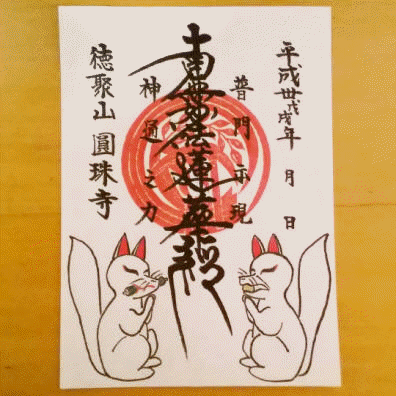 平成卅戊戌年 月 日
普門示現
南無妙法蓮華経
神通之力
徳聚山 圓珠寺